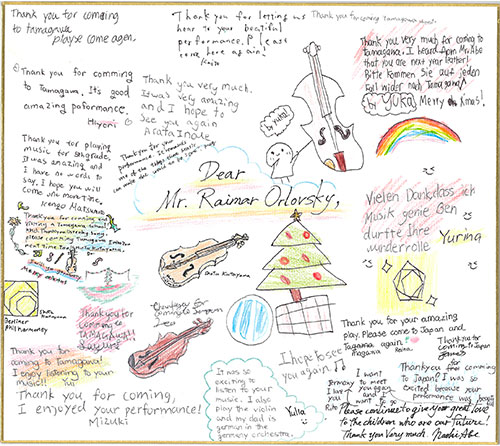 Thank you for comming
to tamagawa
playse come agen.
Thank you for letting us
hear to your beautiful
performance. Please
come here again!
Thank you for coming Tamagawa
Thank you very much for coming to
Tamagawa. I heard from Mr. Abe
that you are next year leader!
Bitte kommen Sie auf jeden
Fall wider nach Tamagawa!
by YUKA
Merry Xmas!
Thank you for comming
to Tamagawa. It's good
amazing paformance!
Miyoni
Thank you very much.
It was very amazing
and I hope to
see you again
Arata Inoue
by yuka!
Thank you for playing
music for 8th grade.
It was amazing and
I have no words to
say. I hope you will
come one more time.
Kengo Matsuno
Thank you for your
performance.
Dear
Mr. Raimar Orlovsky,
Vielen Dank dass ich
Musik genie Gen
durfte Ihre
wundervolle
Yurina
Berliner
Philharmoney
Thank you for
coming to
Thank you for
coming to Tamagawa!
I enjoy listening to your
music!!
Yui
Thank you for coming,
I enjoyed your performance!
Mizuki
It was so
exciting to
listen to your
music. I also
play the violin
and my dad is
german in the
germany orchestra.
Yulia
I hope to see
you again
Thank you for your amazing
play. Please come to Japan and
Tagawa again!
Thank you for
coming to Japan
Thank you for coming
to Japan! I was so
excited because your
performance was
I want
to meet
you again
and I
want
Please continue to give your great love
to the children who are our future!
Thank you Very much. Naoki Abe